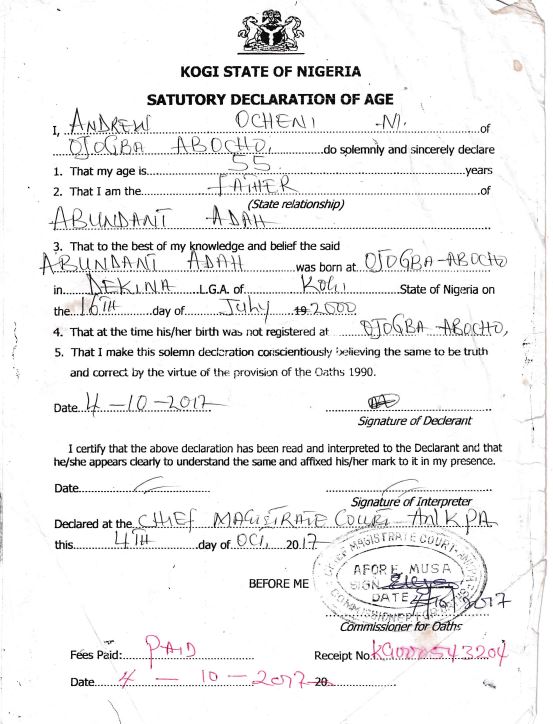 KOGI STATE OF NIGERIA
SATUTORY DECLARATION OF AGE
I, ANDREW OCHENI .N. of
OJOGBA ABOCHO, do solemnly and sincerely declare
1. That my age is 55 years
2. That I am the FATHER of
(State relationship)
ABUNDANT ADAH
3. That to the best of my knowledge and belief the said
ABUNDANT ADAH was born at OJOGBA-ABOCHO
in DEKINA L.G.A. of KOGI State of Nigeria on
the 16TH day of July 19 2000
4. That at the time his/her birth was not registered at OJOGBA-ABOCHO,
5. That I make this solemn declaration conscientiously believing the same to be truth
and correct by the virtue of the provision of the Oaths 1990.
Date 4-10-2017
Signature of Declerant
I certify that the above declaration has been read and interpreted to the Declarant and that
he/she appears clearly to understand the same and affixed his/her mark to it in my presence.
Date
Signature of Interpreter
Declared at the CHIEF MAGISTRATE COURT ANKPA
this 4TH day of OCT, 2017
CHIEF MAGISTRATE COURT
AFORE MUSA
BEFORE ME SIGN
DATE 4/10/2017
COMMISSIONER FOR
Commissioner for Oaths
Fees Paid: PAID Receipt No. KG0000543204
Date 4 - 10 - 2017 20